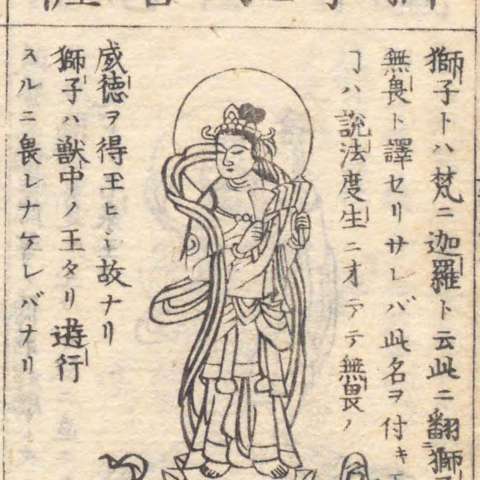 獅子トハ梵ニ迦羅ト云此ニ翻ニ獅
無畏ト譯セリサレバ此名ヲ付キ
ヿハ説法度生ニオヰテ無畏ノ
威徳ヲ得玉ヒシ故ナリ
獅子ハ獣中ノ王タリ遊行
スルニ畏レナケレバナリ